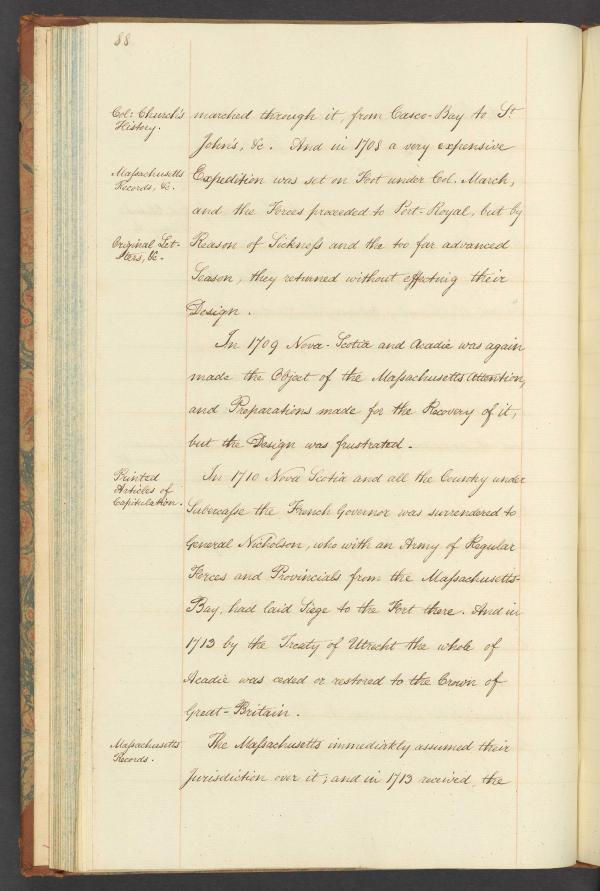 88
Col: Church's
History.
marched through it, from Casco-Bay to St
John's, &c. And in 1708 a very expensive
Massachusetts
Records, &c.
Expedition was set on Foot under Col. March,
and the Forces proceeded to Port-Royal, but by
Original Let-
ters, &c.
Reason of Sickness and the too far advanced
Season, they returned without effecting their
Design.
In 1709 Nova-Scotia and Acadie was again
made the Object of the Massachusetts Attention,
and Preparations made for the Recovery of it,
but the Design was frustrated.
Printed
Articles of
Capitulation.
In 1710 Nova Scotia and all the Country under
Subercasse the French Governor was surrendered to
General Nicholson, who with an Army of Regular
Forces and Provincials from the Massachusetts-
Bay, had laid Siege to the Fort there. And in
1713 by the Treaty of Utrecht the whole of
Acadie was ceded or restored to the Crown of
Great-Britain.
Massachusetts
Records.
The Massachusetts immediately assumed their
Jurisdiction over it; and in 1713 received the